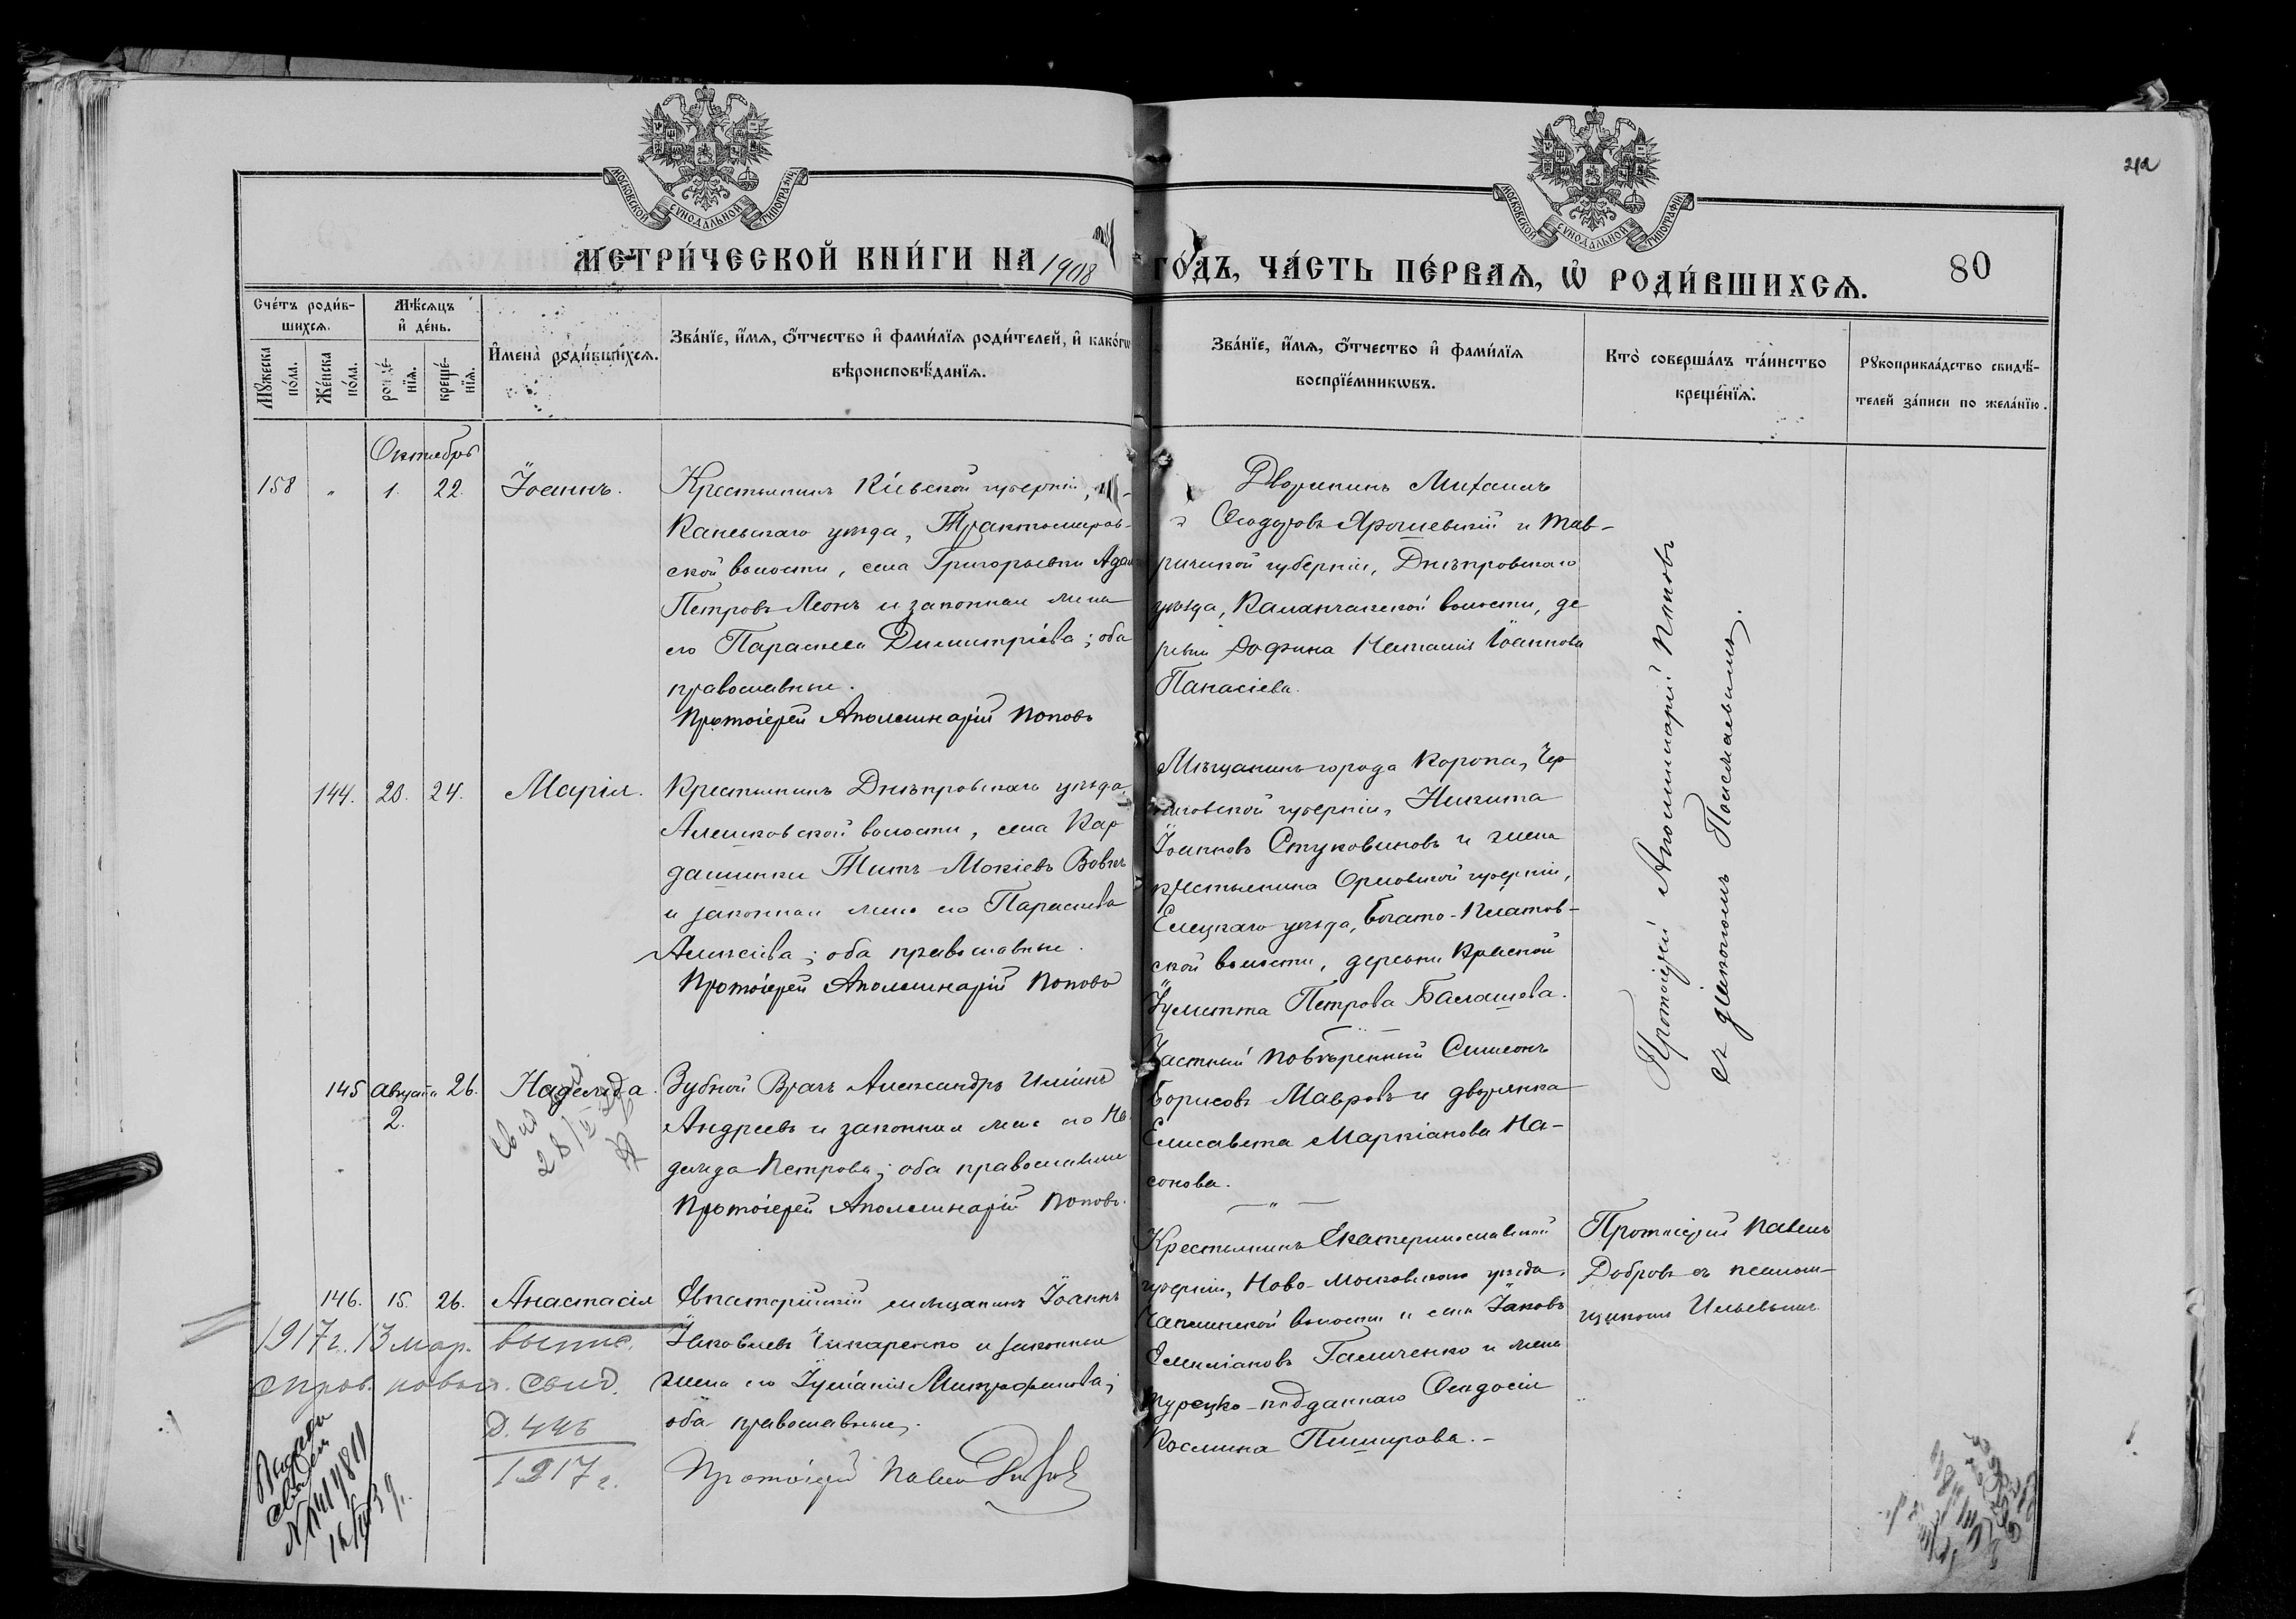 212
МОСКОВСКОЙ СУНОДАЛЬНОЙ ТИПОГРАФІИ
МОСКОВСКОЙ СУНОДАЛЬНОЙ ТИПОГРАФІИ
МЕТРИ́ЧЕСКОЙ КНИ́ГИ НА 1908 ГО́ДЪ, ЧА́СТЬ ПЕ́РВАѦ, Ѡ РОДИ́ВШИХСѦ.
80
Сче́тъ роди́в-
шихсѧ.
Мꙋ́жеска по́ла.
Же́нска по́ла.
Мѣ́сѧцъ
и҆ де́нь.
рожде́-
нїѧ.
креще́-
нїѧ.
И҆мена̀ роди́вшихсѧ.
Зва́нїе, и҆́мѧ, ѻ҆́тчество и҆ фами́лїѧ роди́телей, и҆ како́гѡ
вѣроисповѣ́данїѧ.
Зва́нїе, и҆́мѧ, ѻ҆́тчество и҆ фами́лїѧ
воспрїе́мникѡвъ.
Кто̀ соверша́лъ та́инство
креще́нїѧ.
Рꙋкоприкла́дство свидѣ́-
телей за́писи по жела́нїю.
Октябрь
158 " 1. 22. Іоаннъ.
Крестьянинъ Кіевской губерніи,
Каневскаго уѣзда, Трактомиров-
ской волости, села Григорьевки Адам
Петровъ Леонъ и законная жена
его Параскева Димитріева; оба
православные.
Протоіерей Аполлинарій Поповъ
Дворянинъ Михаилъ
Ѳеодоровъ Ярошевскій и Тав-
рической губерніи, Днѣпровскаго
уѣзда, Каланчакской волости, де
ревни Дофина Наталія Іоаннова
Панасіева.
Протоіерей Аполлинарій Поповъ
съ діакономъ
144. 20. 24. Марія.
Крестьянинъ Днѣпровскаго уѣзда,
Алешковской волости, села Кар
дашинки Титъ Мокіевъ Вовкъ
и законная жена его Параскева
Алексіева; оба православные.
Протоіерей Аполлинарій Поповъ
Мѣщанинъ города Коропа, Чер
ниговской губерніи, Никита
Іоанновъ Стуковиновъ и жена
крестьянина Орловской губерніи,
Елецкаго уѣзда, Богато-Платов-
ской волости, деревни Красной
Іулитта Петрова Балашева.
145 Августа 2. 26. Надежда.
Зубной Врачъ Александръ Иліинъ
Андреевъ и законная жена его На
дежда Петрова; оба православные
Протоіерей Аполлинарій Поповъ.
Частный повѣренный Симеонъ
Борисовъ Мавровъ и дворянка
Елисавета Маркіанова На-
сонова.
146. 15. 26. Анастасія
Евпаторійскій мѣщанинъ Іоаннъ
Яковлевъ Чикаренко и законная
жена его Іуліанія Митрофанова;
оба православные.
Протоіерей Павелъ Добровъ
Крестьянинъ Екатеринославской
губерніи, Ново-Московскаго уѣзда,
Чаплинской волости и села Іаковъ
Емиліановъ Галиченко и жена
турецко-подданнаго Ѳеодосія
Космина Пиширова.
Протоіерей Павелъ
Добровъ съ псалом-
щикомъ Ильевымъ
1917 г. 13 мар. выпис.
Д. 446
1917 г.